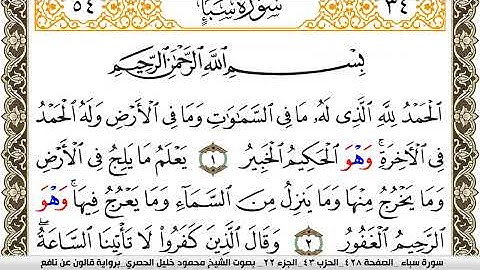 ٣٤ سُورَةُ سَبَإٍ ٥٤
بِسْمِ اللَّهِ الرَّحْمَٰنِ الرَّحِيمِ
الْحَمْدُ لِلَّهِ الَّذِي لَهُ مَا فِي السَّمَٰوَٰتِ وَمَا فِي الْأَرْضِ وَلَهُ الْحَمْدُ
فِي الْأَخِرَةِ وَهْوَ الْحَكِيمُ الْخَبِيرُ ١ يَعْلَمُ مَا يَلِجُ فِي الْأَرْضِ
وَمَا يَخْرُجُ مِنْهَا وَمَا يَنزِلُ مِنَ السَّمَآءِ وَمَا يَعْرُجُ فِيهَا وَهْوَ
الرَّحِيمُ الْغَفُورُ ٢ وَقَالَ الَّذِينَ كَفَرُوا لَا تَأْتِينَا السَّاعَةُ
سورة سباء _ الصفحة ٤٢٨ _ الحزب ٤٣ _ الجزء ٢٢ _ بصوت الشيخ محمود خليل الحصري_ برواية قالون عن نافع